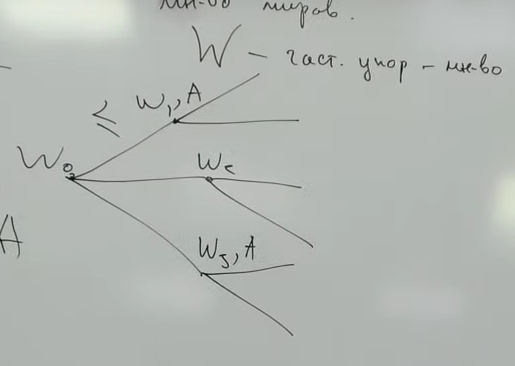 мн-во миров.
W – част. упор – мн-во
≤ W₁, A
W₀ W₂
A
W₃, A